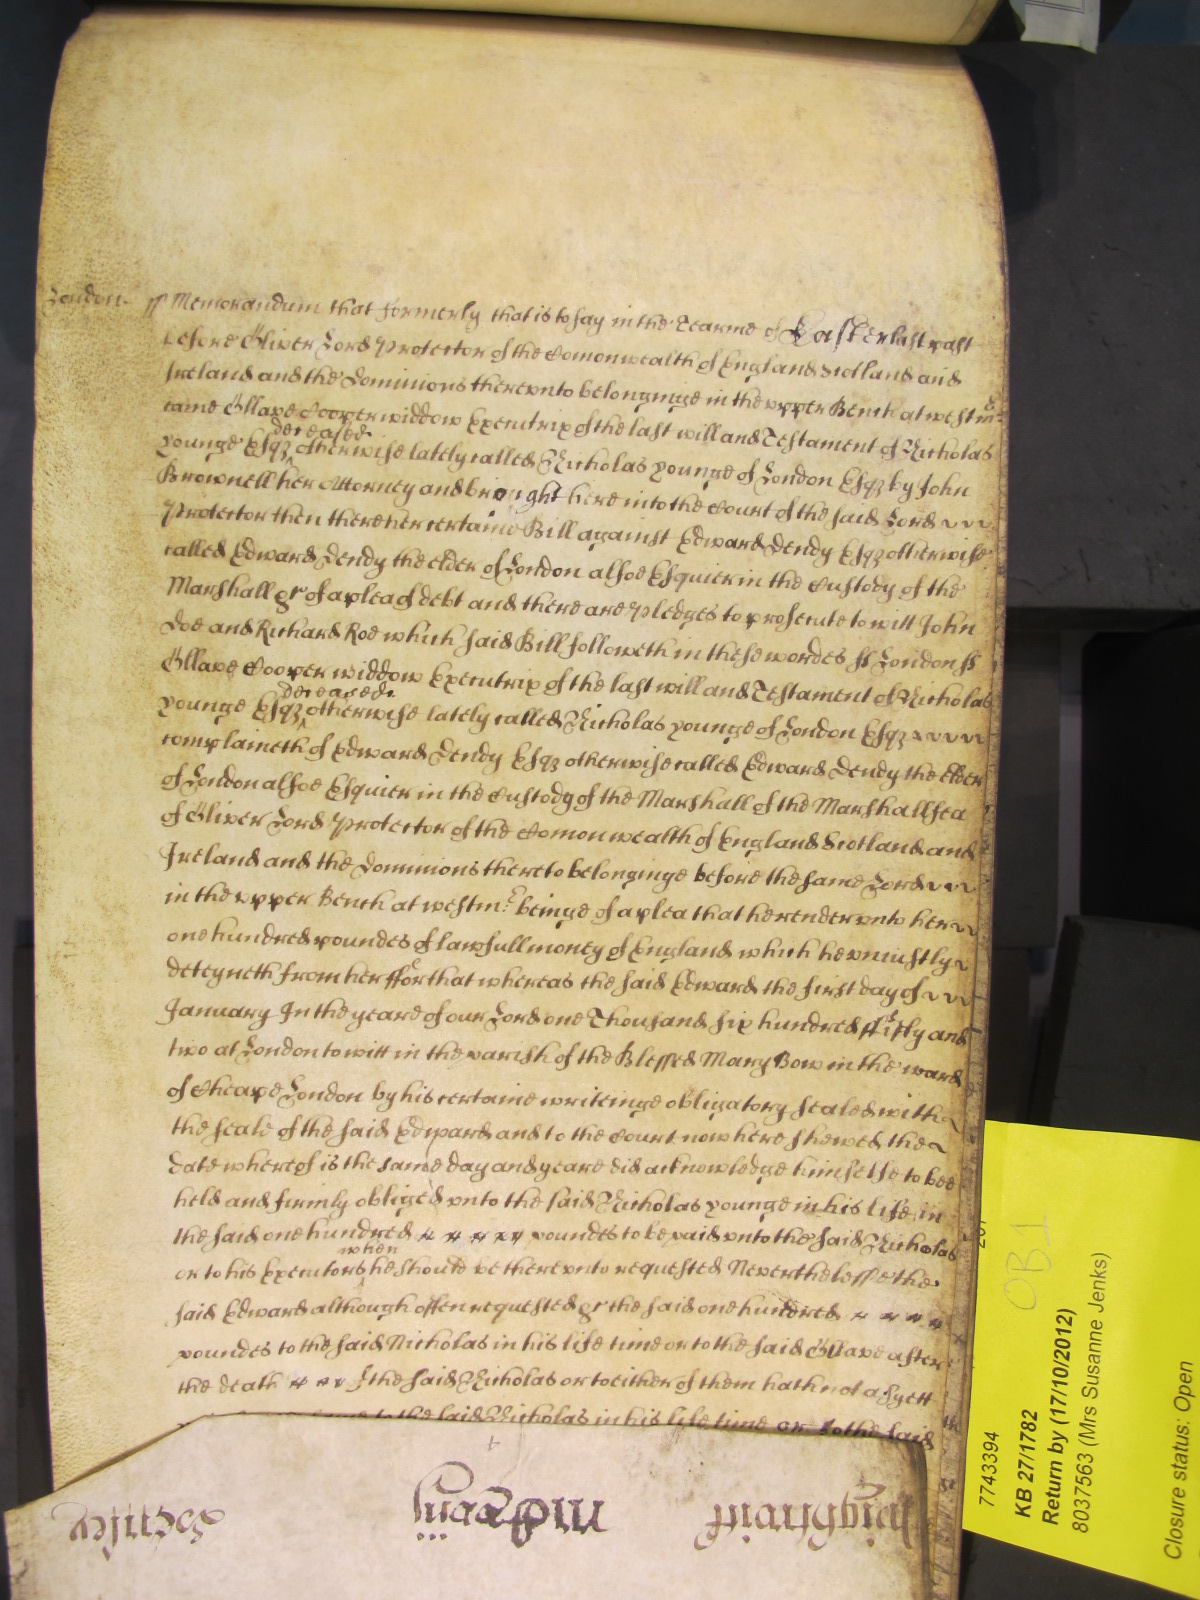 London ss Memorandum that formerly that is to say in the Tearme of Easter last past
before Oliver Lord Protector of the Comonwealth of England Scotland and
Ireland and the Dominions therevnto belonginge in the vpper Bench at westmr
came Ollave Cooper widdow Executrix of the last will and Testament of Nicholas
deceased
younge Esqz otherwise lately called Nicholas younge of London Esqz by John
Brownell her Attorney and brought here into the Court of the said Lord
Protector then there her certaine Bill against Edward Dendy Esqz otherwise
called Edward Dendy the elder of London alsoe Esquier in the Custody of the
Marshall &c of a plea of debt and there are Pledges to prosecute to witt John
Doe and Richard Roe which said Bill followeth in these wordes ss London ss
Ollave Cooper widdow Executrix of the last will and Testament of Nicholas
deceased
younge Esqz otherwise lately called Nicholas younge of London Esqz
complaineth of Edward Dendy Esqz otherwise called Edward Dendy the elder
of London alsoe Esquier in the Custody of the Marshall of the Marshallsea
of Oliver Lord Protector of the Comonwealth of England Scotland and
Ireland and the Dominions thereto belonginge before the same Lord
in the vpper Bench at westmr beinge of a plea that he render vnto her
one hundred poundes of lawfull money of England which he vniustly
deteyneth from her ffor that whereas the said Edward the first day of
January In the yeare of our Lord one Thousand six hundred ffifty and
two at London to witt in the parish of the Blessed Mary Bow in the ward
of Cheape London by his certaine writeinge obligatory sealed with
the seale of the said Edward and to the Court now here shewed the
date whereof is the same day and yeare did acknowledge himselfe to bee
held and firmly obliged vnto the said Nicholas younge in his life in
the said one hundred poundes to be paid vnto the said Nicholas
when
or to his Executors he should be therevnto requested Neverthelesse the
said Edward although often requested &c the said one hundred
poundes to the said Nicholas in his life time or to the said Ollave after
the death of the said Nicholas or to either of them hath not as yett
to the said Nicholas in his life time or to the said
7743394
KB 27/1782
Return by (17/10/2012)
8037563 (Mrs Susanne Jenks)
Closure status: Open
OB1